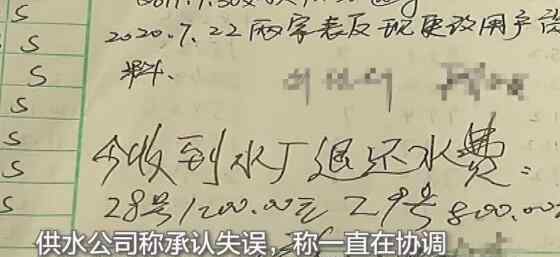 S
S
2020.7.22两家表反现更改用户资
S
料.
S
S
今收到水厂退还水费:
S
28号1200.00元 29号800.00
S
供水公司称承认失误，称一直在协调